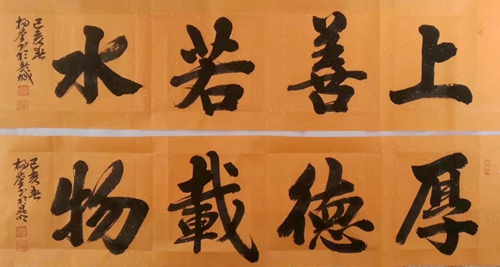 上善若水
己亥春
厚德載物
己亥春